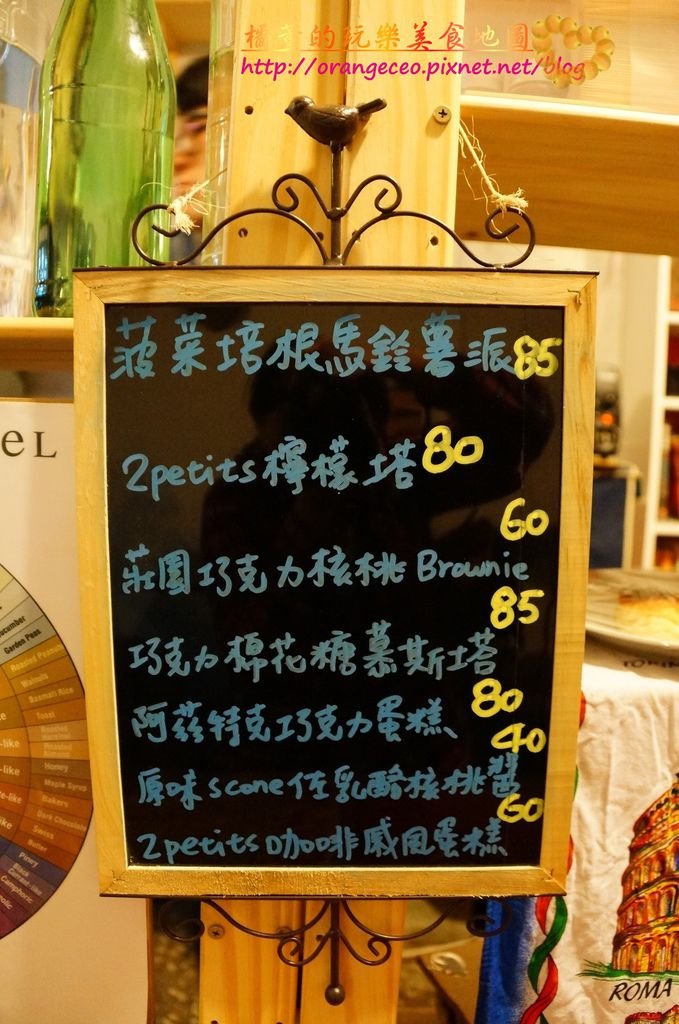 橘子的玩樂美食地圖
http://orangeceo.pixnet.net/blog
菠菜培根馬鈴薯派85
2petits檸檬塔80
60
莊園巧克力核桃Brownie
85
巧克力棉花糖慕斯塔
80
阿茲特克巧克力蛋糕
40
原味scone佐乳酪核桃醬
60
2petits咖啡戚風蛋糕
eL
Cucumber
Garden Peas
Roasted Peanuts
Walnuts
Basmati Rice
Toast
Roasted Hazelnut
Roasted Almond
Honey
Maple Syrup
Bakers
Dark Chocolate
Swiss
Butter
Piney
Camphoric
ROMA